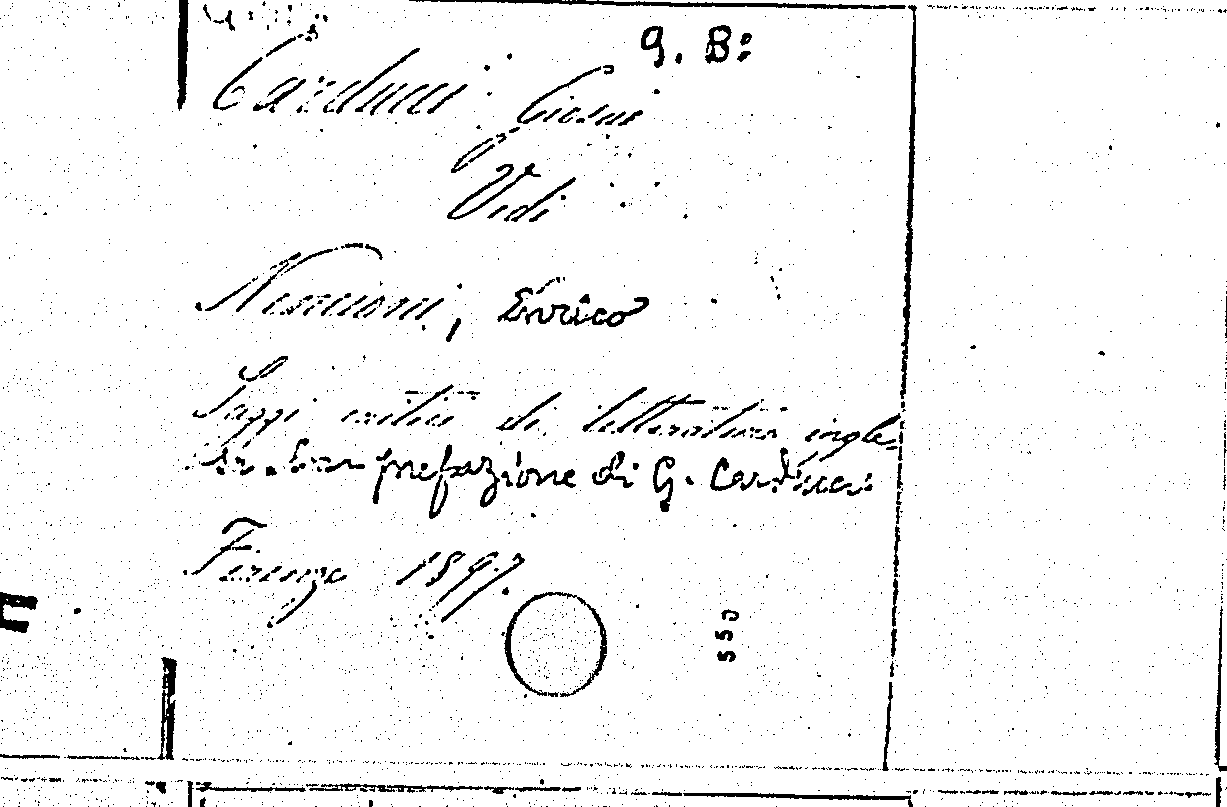 G. B:
Carducci Giosuè
Vedi
Nencioni, Enrico
Saggi critici di letteratura ingle=
se. Con prefazione di G. Carducci
Firenze 1897.